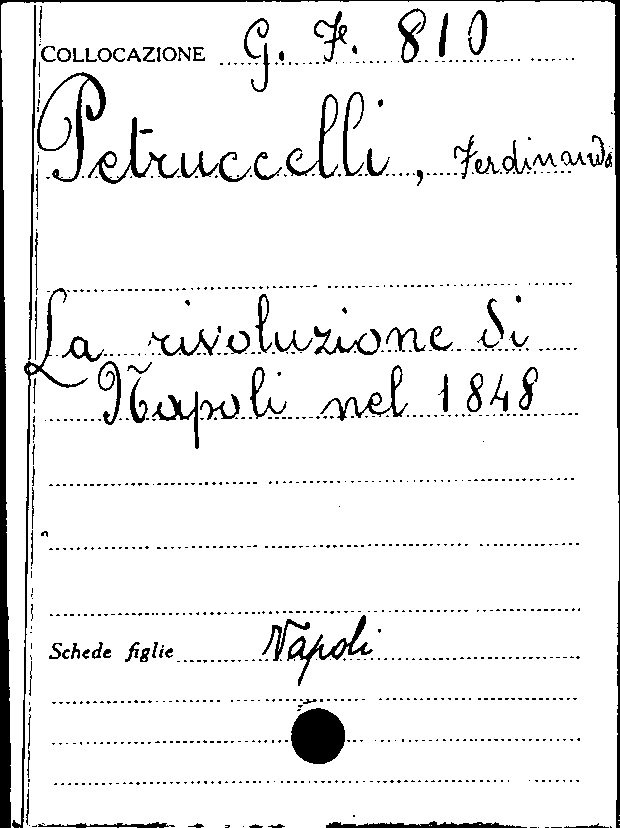 COLLOCAZIONE G. F. 810
Petruccelli, Ferdinando
La rivoluzione di
Napoli nel 1848
Schede figlie Napoli